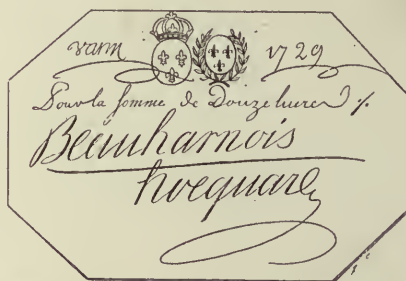 vann 1729
Pour la somme de Douze livres
Beauharnois
hocquare